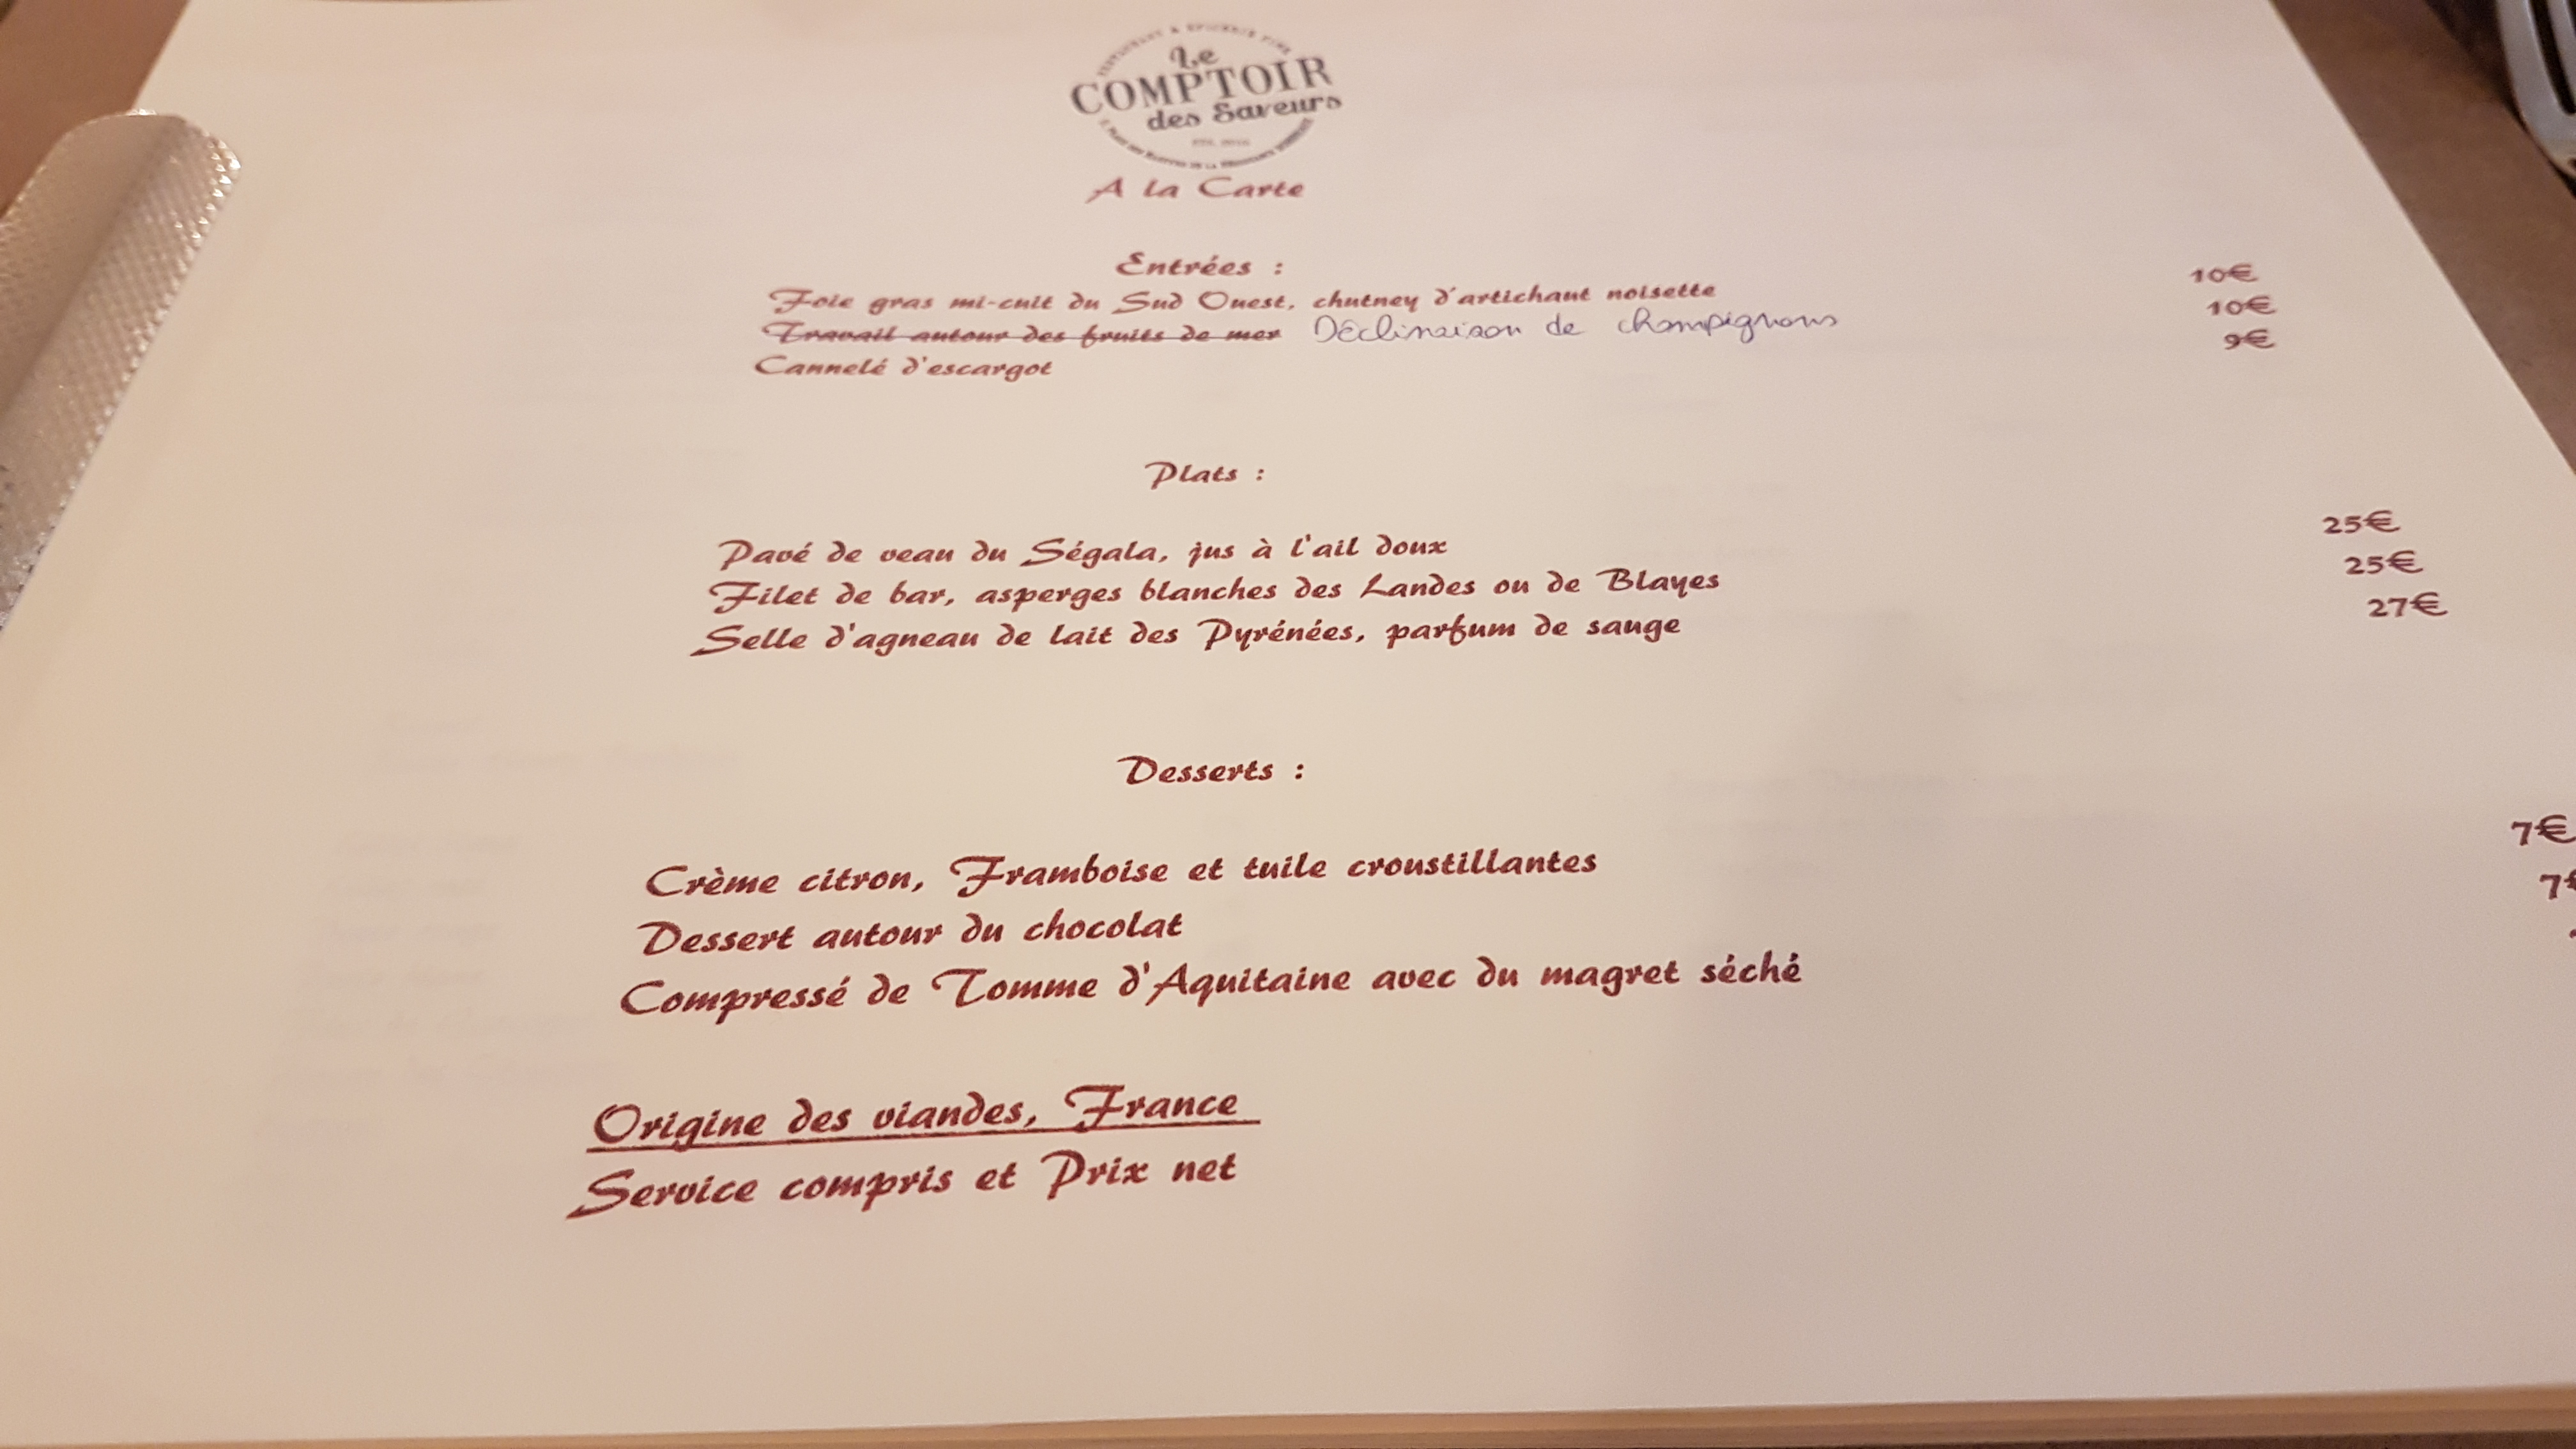 Le
COMPTOIR
des Saveurs
A la Carte
Entrées :
Foie gras mi-cuit du Sud Ouest, chutney d'artichaut noisette 10€
Travail autour des fruits de mer Déclinaison de champignons 10€
Cannelé d'escargot 9€
Plats :
Pavé de veau du Ségala, jus à l'ail doux 25€
Filet de bar, asperges blanches des Landes ou de Blayes 25€
Selle d'agneau de lait des Pyrénées, parfum de sauge 27€
Desserts :
Crème citron, Framboise et tuile croustillantes 7€
Dessert autour du chocolat 7€
Compressé de Tomme d'Aquitaine avec du magret séché
Origine des viandes, France
Service compris et Prix net